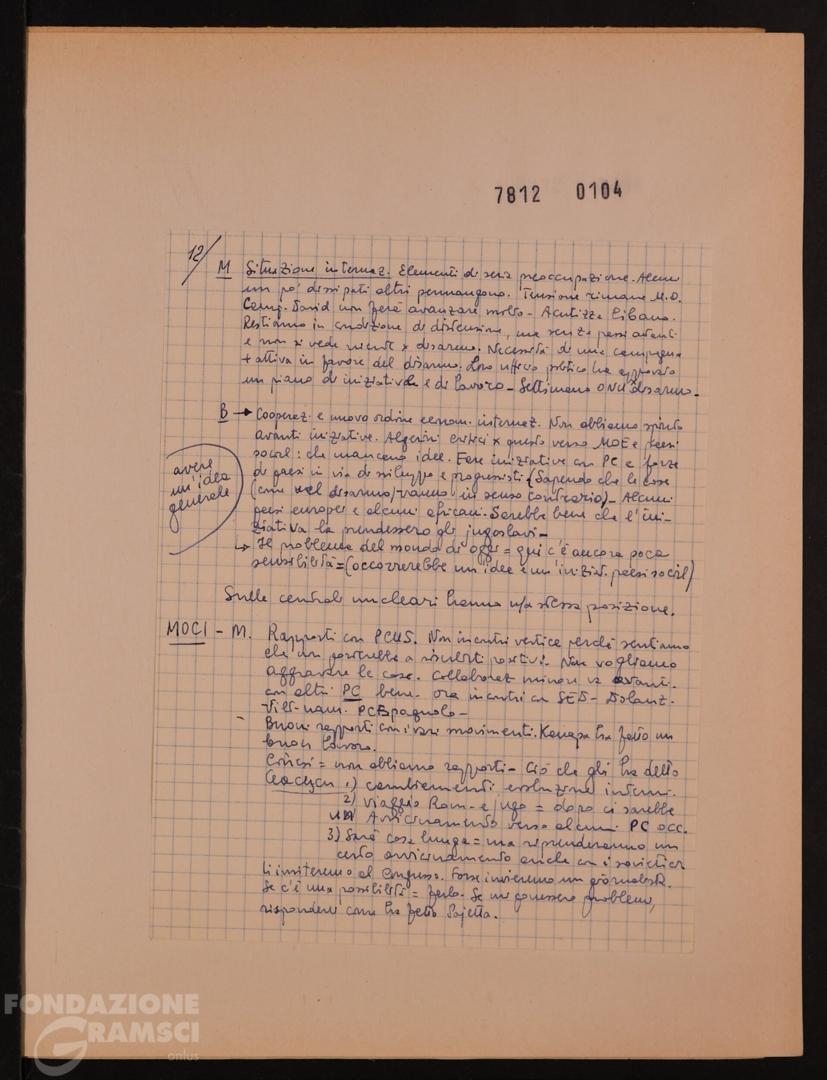 7812 0104
12/
M Situazione internaz. Elementi di seria preoccupazione. Alcuni
un po' dissipati altri permangono. Tensione rimane M.O.
Camp. David non farà avanzare molto - Acutizza Libano.
Restiamo in condizione di distensione, ma senza passi avanti
e non si vede niente x disarmo. Necessità di una campagna
+ attiva in favore del disarmo. Loro ufficio politico ha approvato
un piano di iniziative e di lavoro - Settimana ONU x disarmo -
B → Cooperaz. e nuovo ordine econom. internaz. Non abbiamo spinto
avanti iniziative. Algerini critici x questo verso MOE e paesi
social: che mancano idee. Fare iniziative con PC e forze
di paesi in via di sviluppo e progressisti (Sapendo che le cose
(come nel disarmo) vanno in senso contrario) - Alcuni
paesi europei e alcuni africani. Sarebbe bene che l'ini-
ziativa la prendessero gli jugoslavi -
avere
un'idea
generale
↳ Il problema del mondo di oggi = qui c'è ancora poca
sensibilità = (occorrerebbe un'idea e un'iniziat. paesi social)
Sulle centrali nucleari hanno n/a stessa posizione.
MOCI - M. Rapporti con PCUS. Non incontri vertice perché sentiamo
che non porterebbe a risultati positivi. Non vogliamo
aggravare le cose. Collaboraz. minori va avanti.
con altri PC bene. ora incontri con SED - Poland.
Viet-nam. PCSpagnolo -
Buoni rapporti con i vari movimenti. Kanapa ha fatto un
buon lavoro.
Cinesi = non abbiamo rapporti - Ciò che gli ha detto
Ceaucescu 1) cambiamenti evoluzione interni.
2) viaggio Rom - e Jugo = dopo ci sarebbe
un Avvicinamento verso alcuni PC occ.
3) Sarà cosa lunga = ma riprenderanno un
certo avvicinamento anche con i sovietici
Li inviteremo al Congresso. Forse invieremo un giornalista.
Se c'è una possibilità = farlo. Se mi ponessero problemi,
rispondere come ha fatto Pajetta.
FONDAZIONE
GRAMSCI
onlus